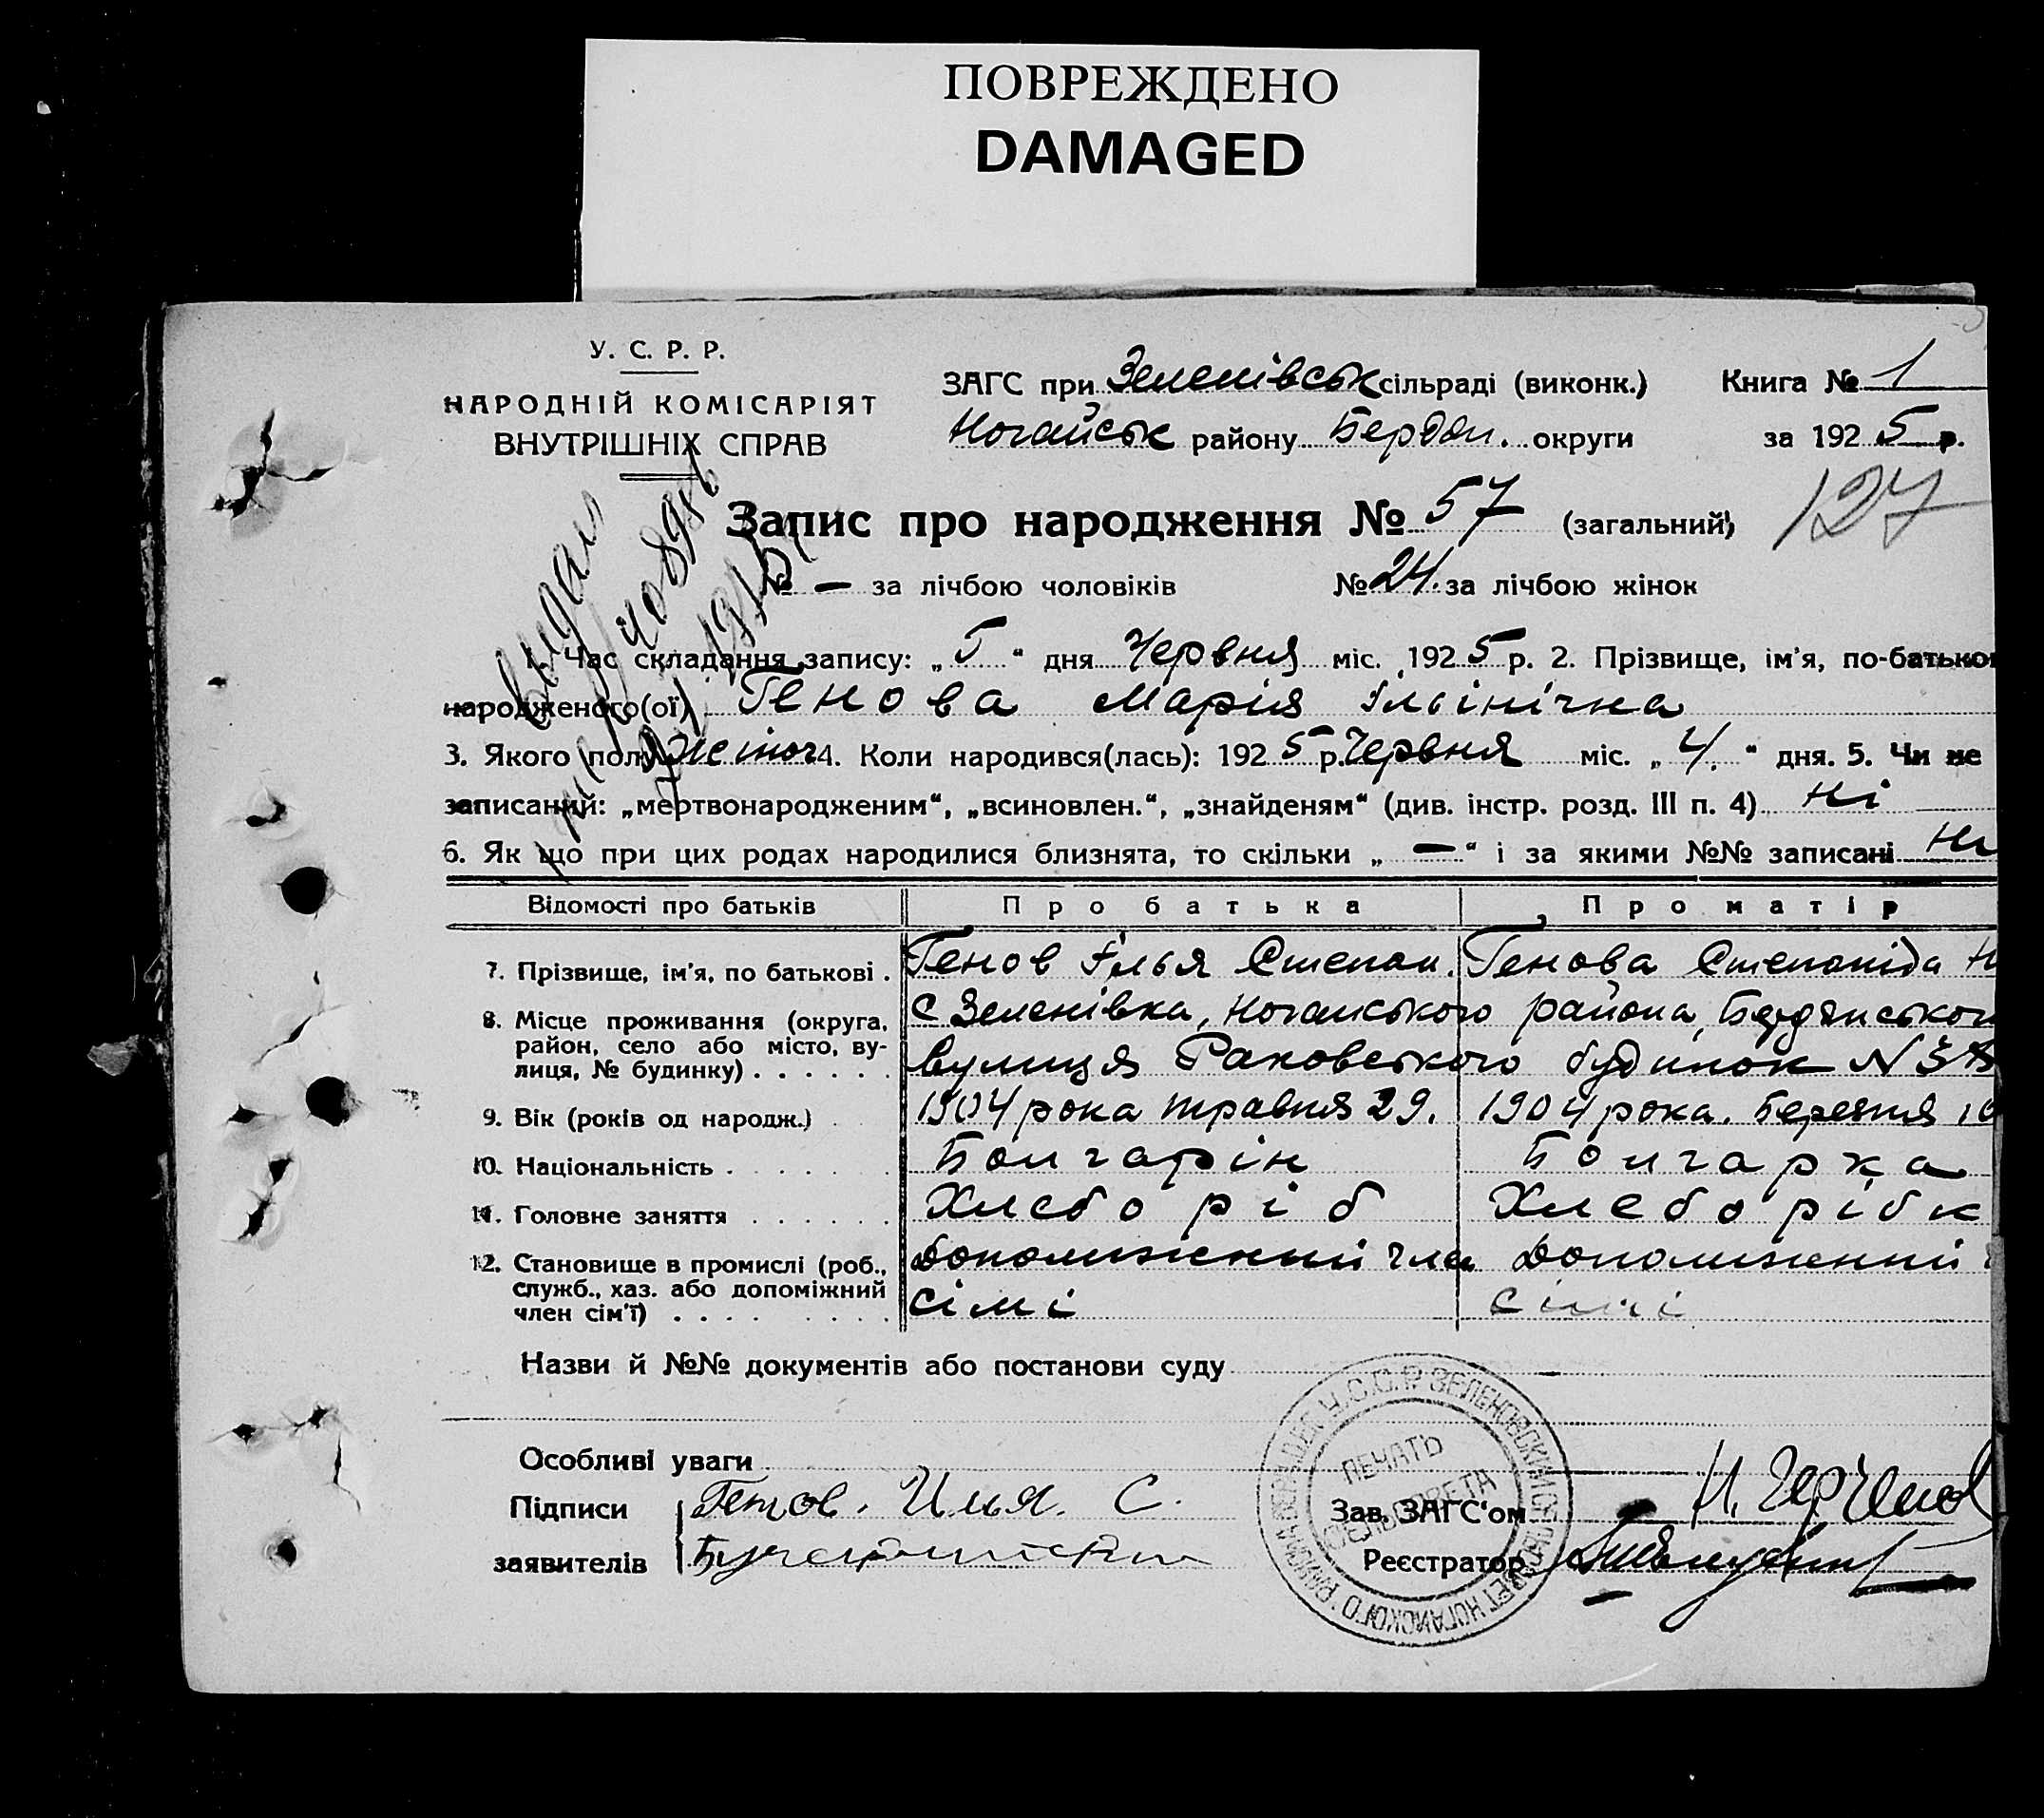 ПОВРЕЖДЕНО
DAMAGED
У. С. Р. Р.
НАРОДНІЙ КОМІСАРІЯТ
ВНУТРІШНІХ СПРАВ
ЗАГС при Зеленівськ сільраді (виконк.) Книга № 1
Ногайськ району Бердян. округи за 1925 р.
Запис про народження № 57 (загальний)
127
№ — за лічбою чоловіків № 24. за лічбою жінок
1. Час складання запису: „5“ дня Червня міс. 1925 р. 2. Прізвище, ім'я, по-батько
народженого(ої) Генова Марія Ільінічна
3. Якого полу жіноч 4. Коли народився(лась): 1925 р. Червня міс. „4.“ дня. 5. Чи не
записаний: „мертвонародженим“, „всиновлен.“, „знайденям“ (див. інстр. розд. III п. 4) Ні
6. Як що при цих родах народилися близнята, то скільки „—“ і за якими №№ записані Ні
Відомості про батьків Про батька Про матір
7. Прізвище, ім'я, по батькові . Генов Ілья Степан. Генова Степаніда
8. Місце проживання (округа, район, село або місто, вулиця, № будинку) . . . . . . С Зеленівка, Ногайського района, Бердянського
вулиця Раковського будинок N
9. Вік (років од народж.) 1904 рока травня 29. 1904 рока. Березня 10
10. Національність . . . . . . . Болгарін Болгарка
11. Головне заняття . . . . . . Хлебо ріб Хлебо рібк
12. Становище в промислі (роб., служб., хаз. або допоміжний член сім'ї) . . . . . . . . Допоміжний член Допоміжний
сімі сімі
Назви й №№ документів або постанови суду
Особливі уваги
Підписи заявителів
Генов. Илья. С.
Зав. ЗАГС'ом
Реєстратор
ПЕЧАТЬ
СЕЛЬСОВЕТА
У.С.С.Р. ЗЕЛЕНОВСКИЙ СЕЛЬСОВЕТ НОГАЙСКОГО РАЙОНА
Выдан